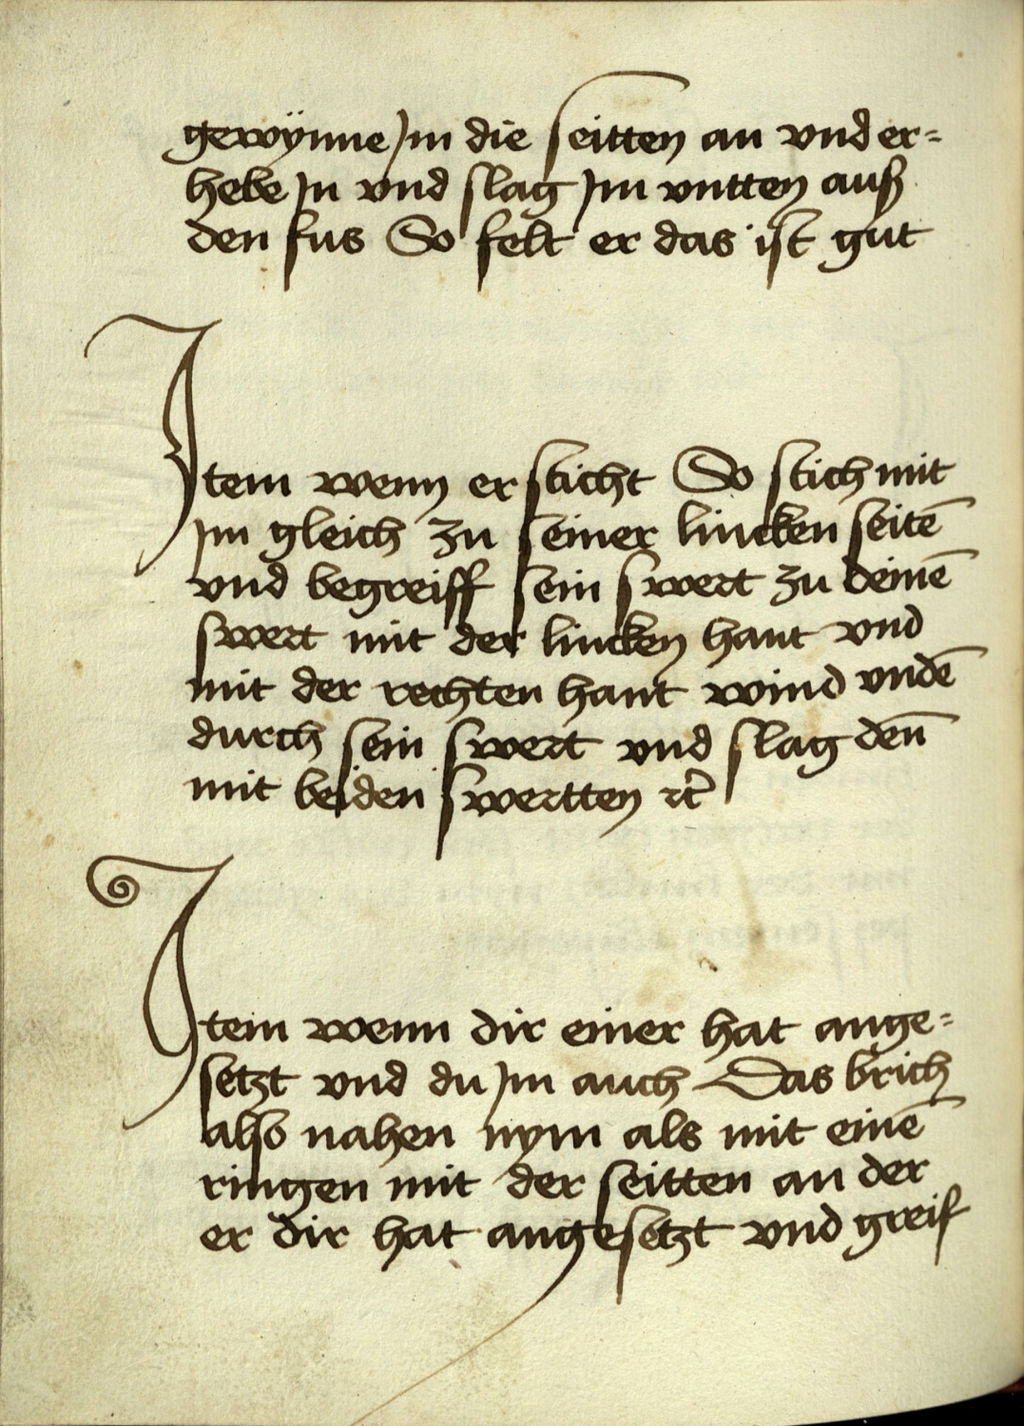 gewÿnne Jm die seitten an vnd er=
hebe Jn vnd slag Jm vntten auß
den fus So felt er das ist gut
Item wenn er sticht So stich mit
Jm gleich zu seiner lincken seitē
vnd begreiff sein swert zu deinē
swert mit der lincken hant vnd
mit der rechten hant wind vndē
durch sein swert vnd slag den̄
mit beiden swertten rc̄
Item wenn dir einer hat ange=
setzt vnd du Jm auch Das brich
also nahen nym als mit einē
ringen mit der seitten an der
er dir hat angesetzt vnd greif